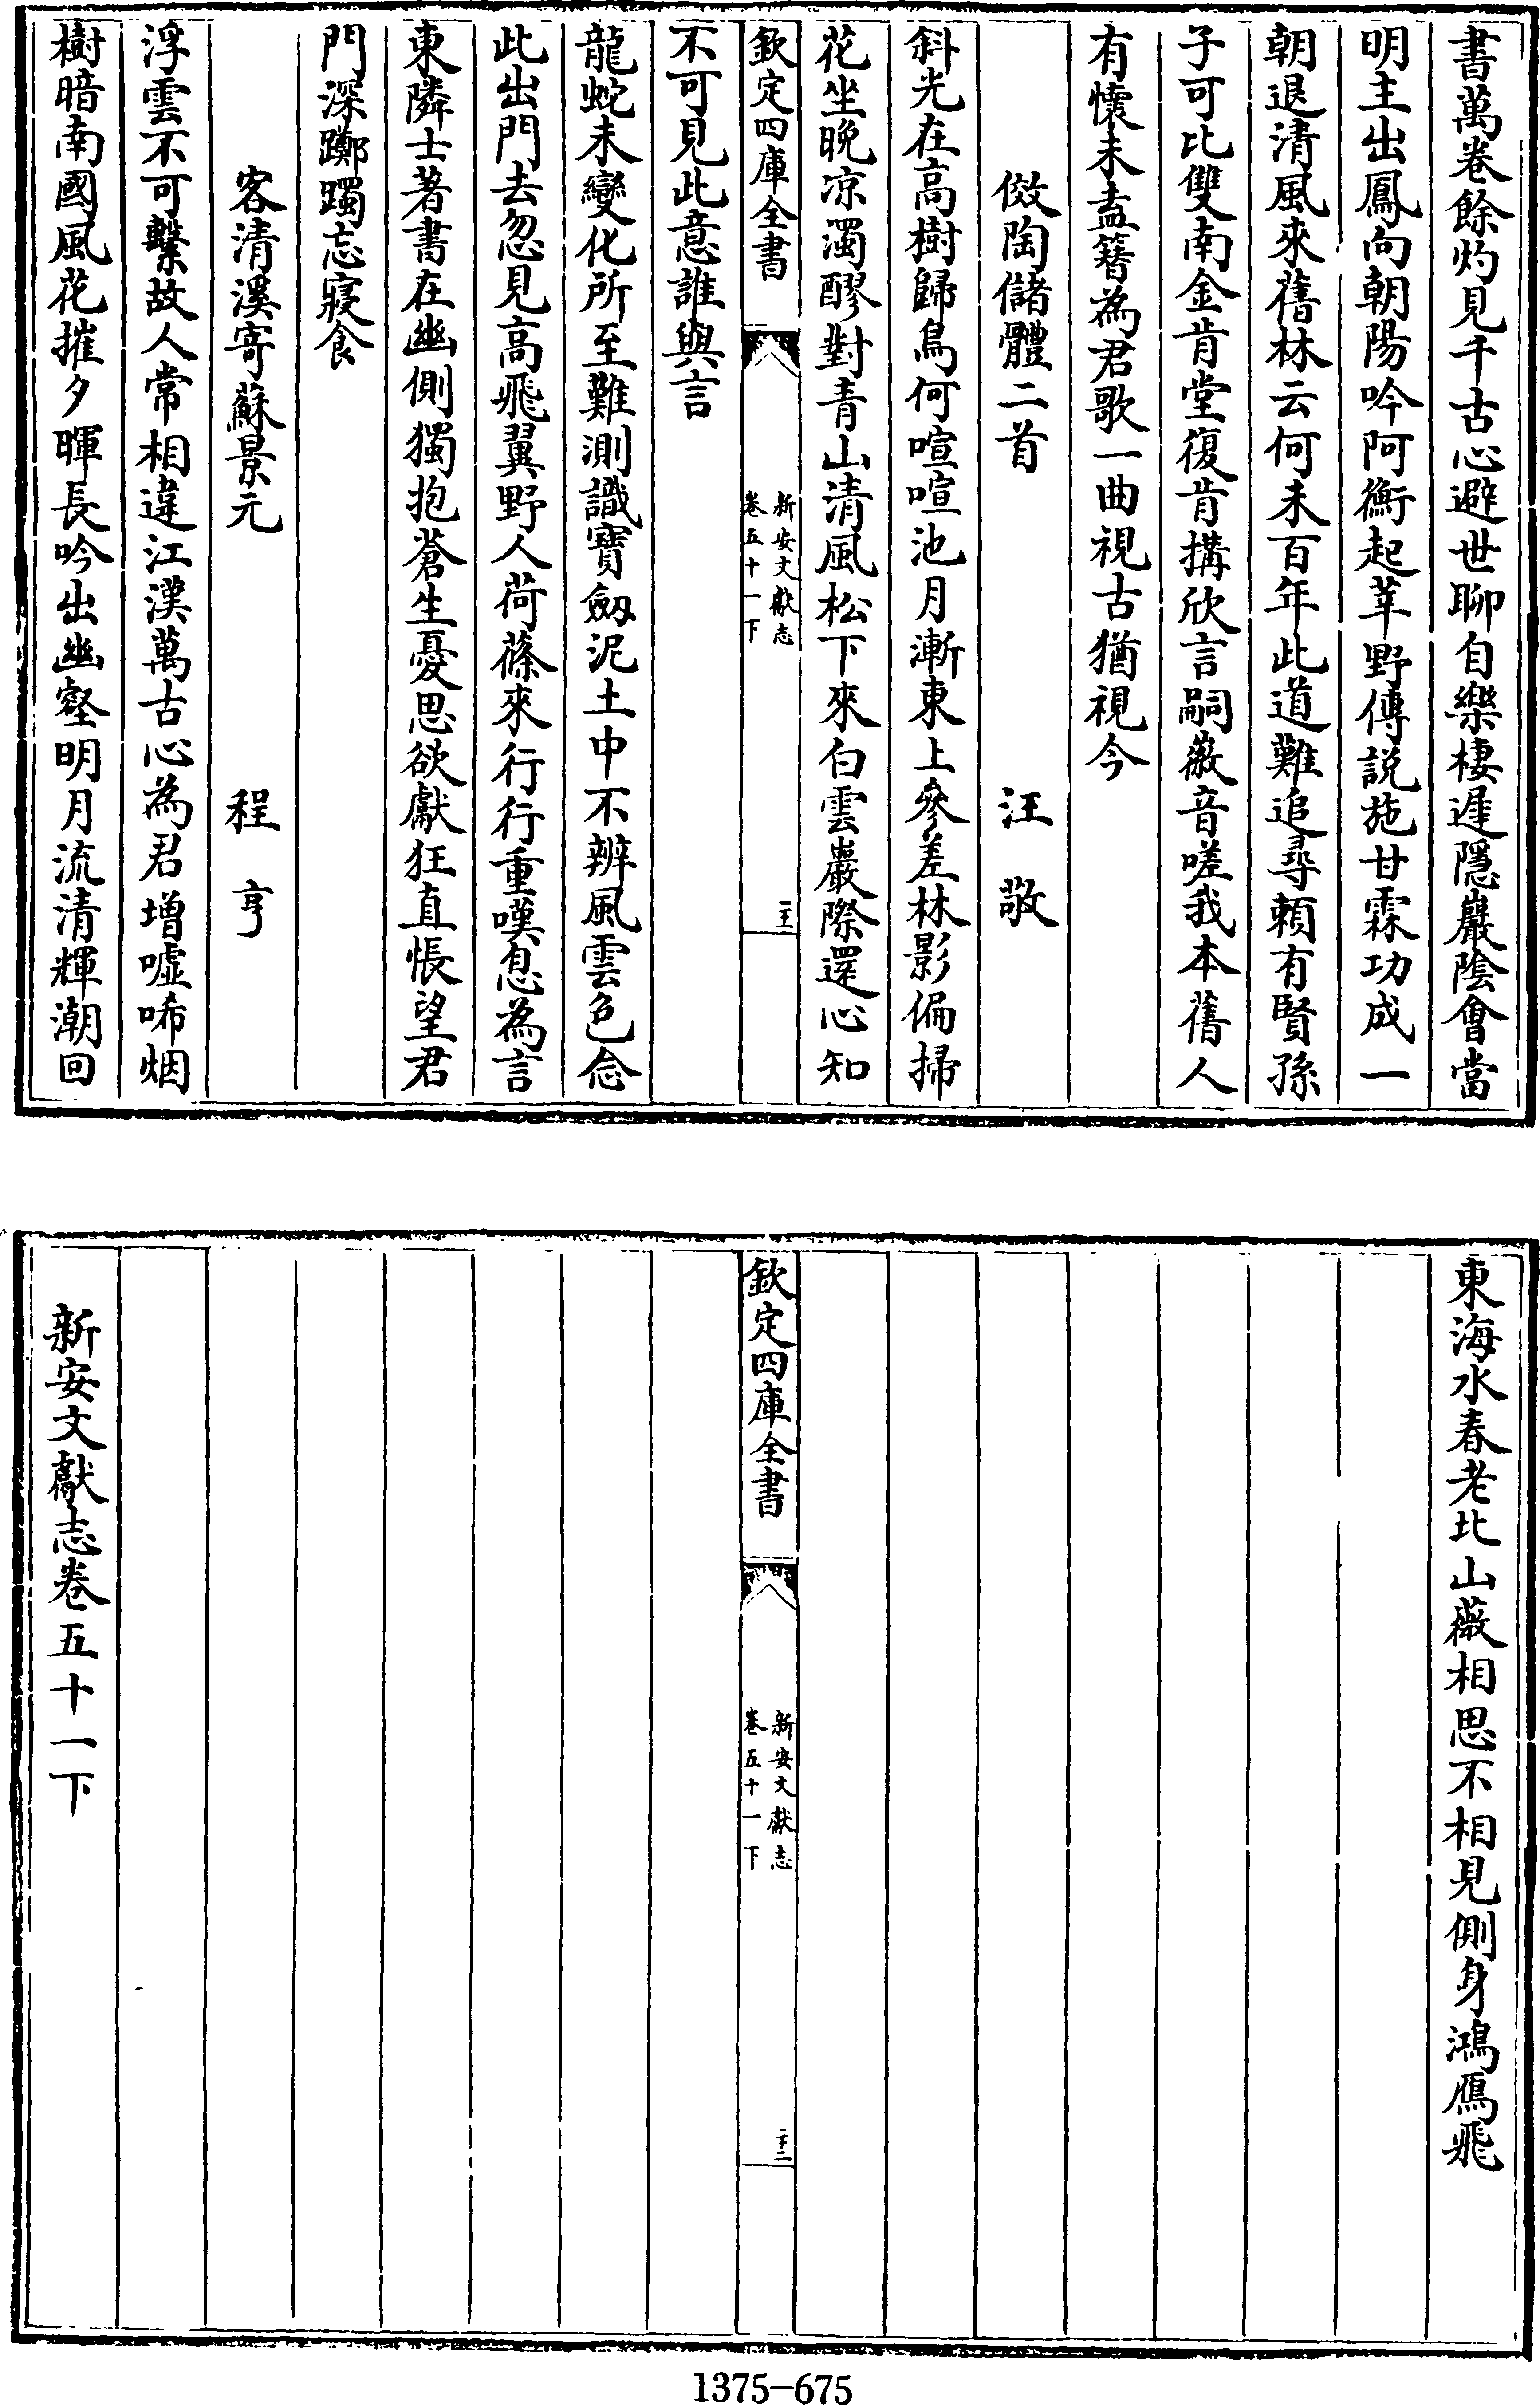 書萬卷餘灼見千古心避世聊自樂棲遲隱巖隂會當
明主出鳳向朝陽吟阿衡起莘野傅説施甘霖功成一
朝退清風來舊林云何未百年此道難追尋頼有賢孫
子可比雙南金肯堂復肯搆欣言嗣徽音嗟我本舊人
有懷未盍簪為君歌一曲視古猶視今
傚陶儲體二首　汪敬
斜光在高樹歸鳥何喧喧池月漸東上參差林影偏掃
花坐晚凉濁醪對青山清風松下來白雲巖際還心知
欽定四庫全書
新安文獻志
卷五十一下
二十一
不可見此意誰與言
龍蛇未變化所至難測識寶劔泥土中不辨風雲色念
此出門去忽見高飛翼野人荷蓧來行行重嘆息為言
東隣士著書在幽側獨抱蒼生憂思欲獻狂直悵望君
門深躑躅忘寢食
客清溪寄蘇景元　程亨
浮雲不可繫故人常相違江漢萬古心為君增嘘唏烟
樹暗南國風花摧夕暉長吟出幽壑明月流清輝潮回
東海水春老北山薇相思不相見側身鴻鴈飛
欽定四庫全書
新安文獻志
卷五十一下
二十二
新安文獻志卷五十一下
1375-675